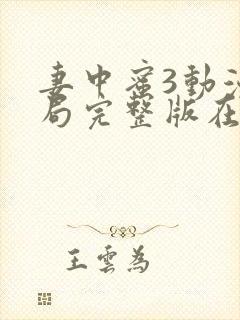 妻中蜜3動
局完整版在
王雲為